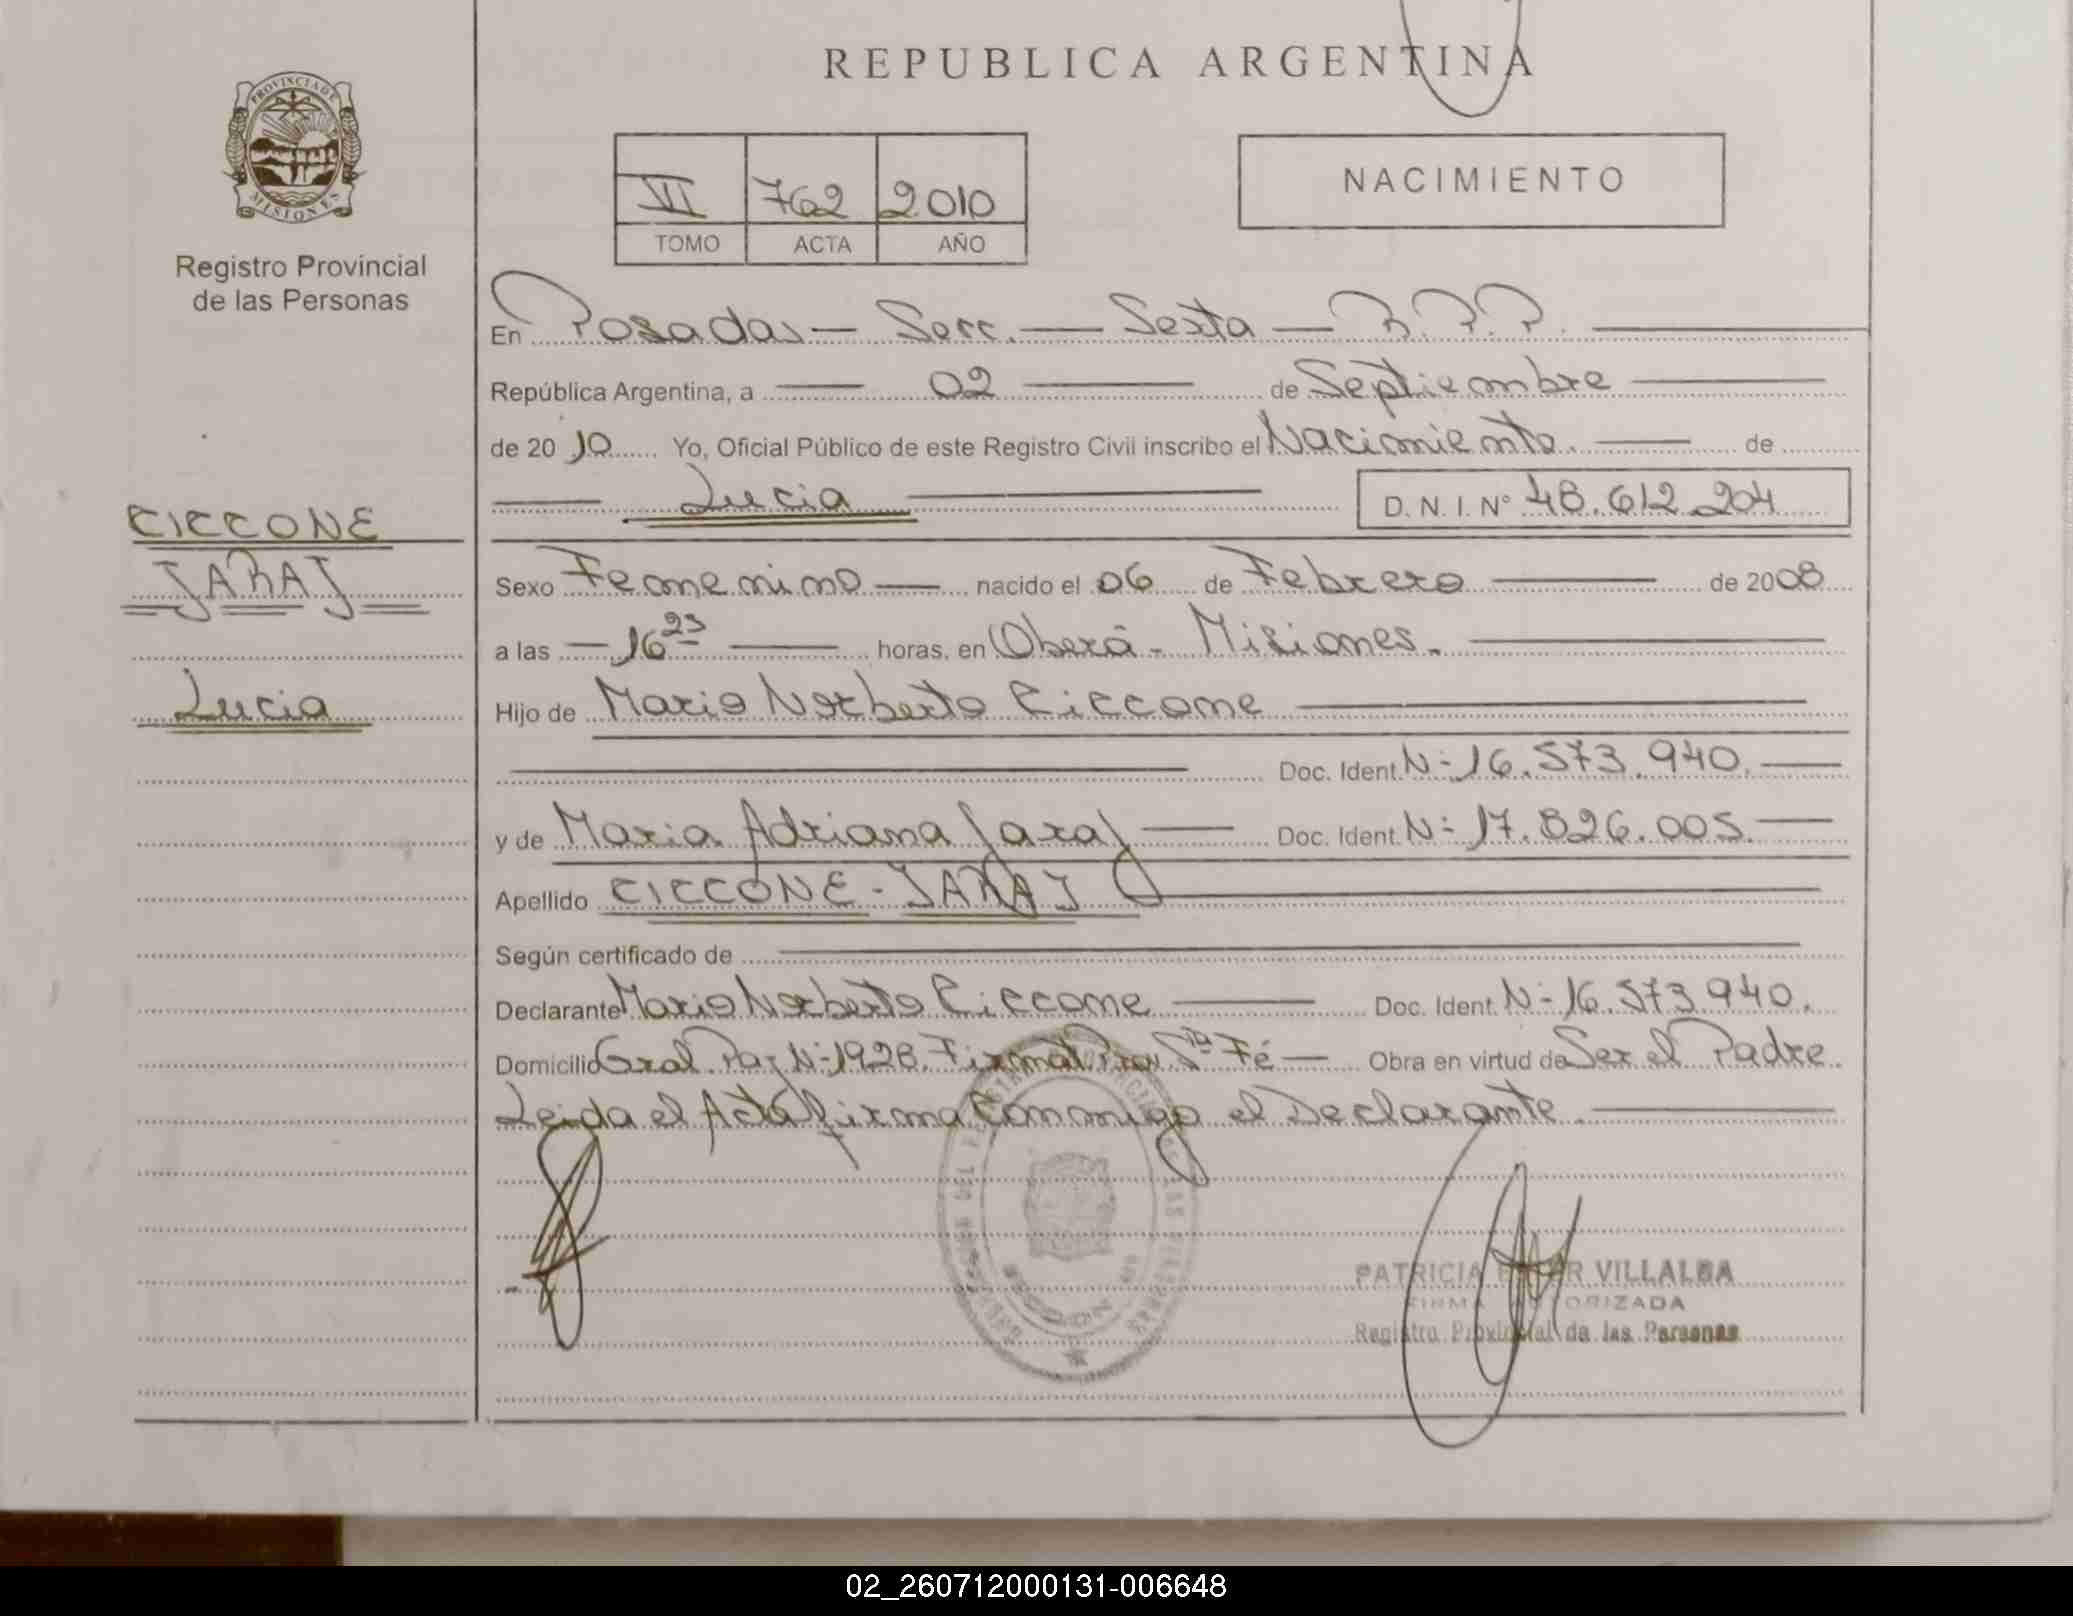 REPUBLICA ARGENTINA
PROVINCIA DE
MISIONES
Registro Provincial
de las Personas
VI 762 2010
TOMO ACTA AÑO
NACIMIENTO
En Posadas — Secc. — Sexta — R.P.P.
República Argentina, a — 02 — de Septiembre
de 2010 Yo, Oficial Público de este Registro Civil inscribo el Nacimiento. — de
Lucia D.N.I. Nº 48.612.204
CICCONE
JARAJ
Lucia
Sexo Femenino — nacido el 06 de Febrero — de 2008
a las — 16 23 — horas, en Oberá - Misiones.
Hijo de Mario Norberto Ciccone
Doc. Ident. N- 16.573.940.
y de Maria Adriana Jaraj — Doc. Ident. N- 17.826.005.
Apellido CICCONE - JARAJ
Según certificado de
Declarante Mario Norberto Ciccone — Doc. Ident. N- 16.573.940.
Domicilio Gral. Paz N- 1928. Firmat Prov. Sta Fé — Obra en virtud de Ser el Padre
Leida el Acta firma Conmigo el Declarante.
PATRICIA VILLALBA
FIRMA AUTORIZADA
Registro Provincial de las Personas
02_260712000131-006648